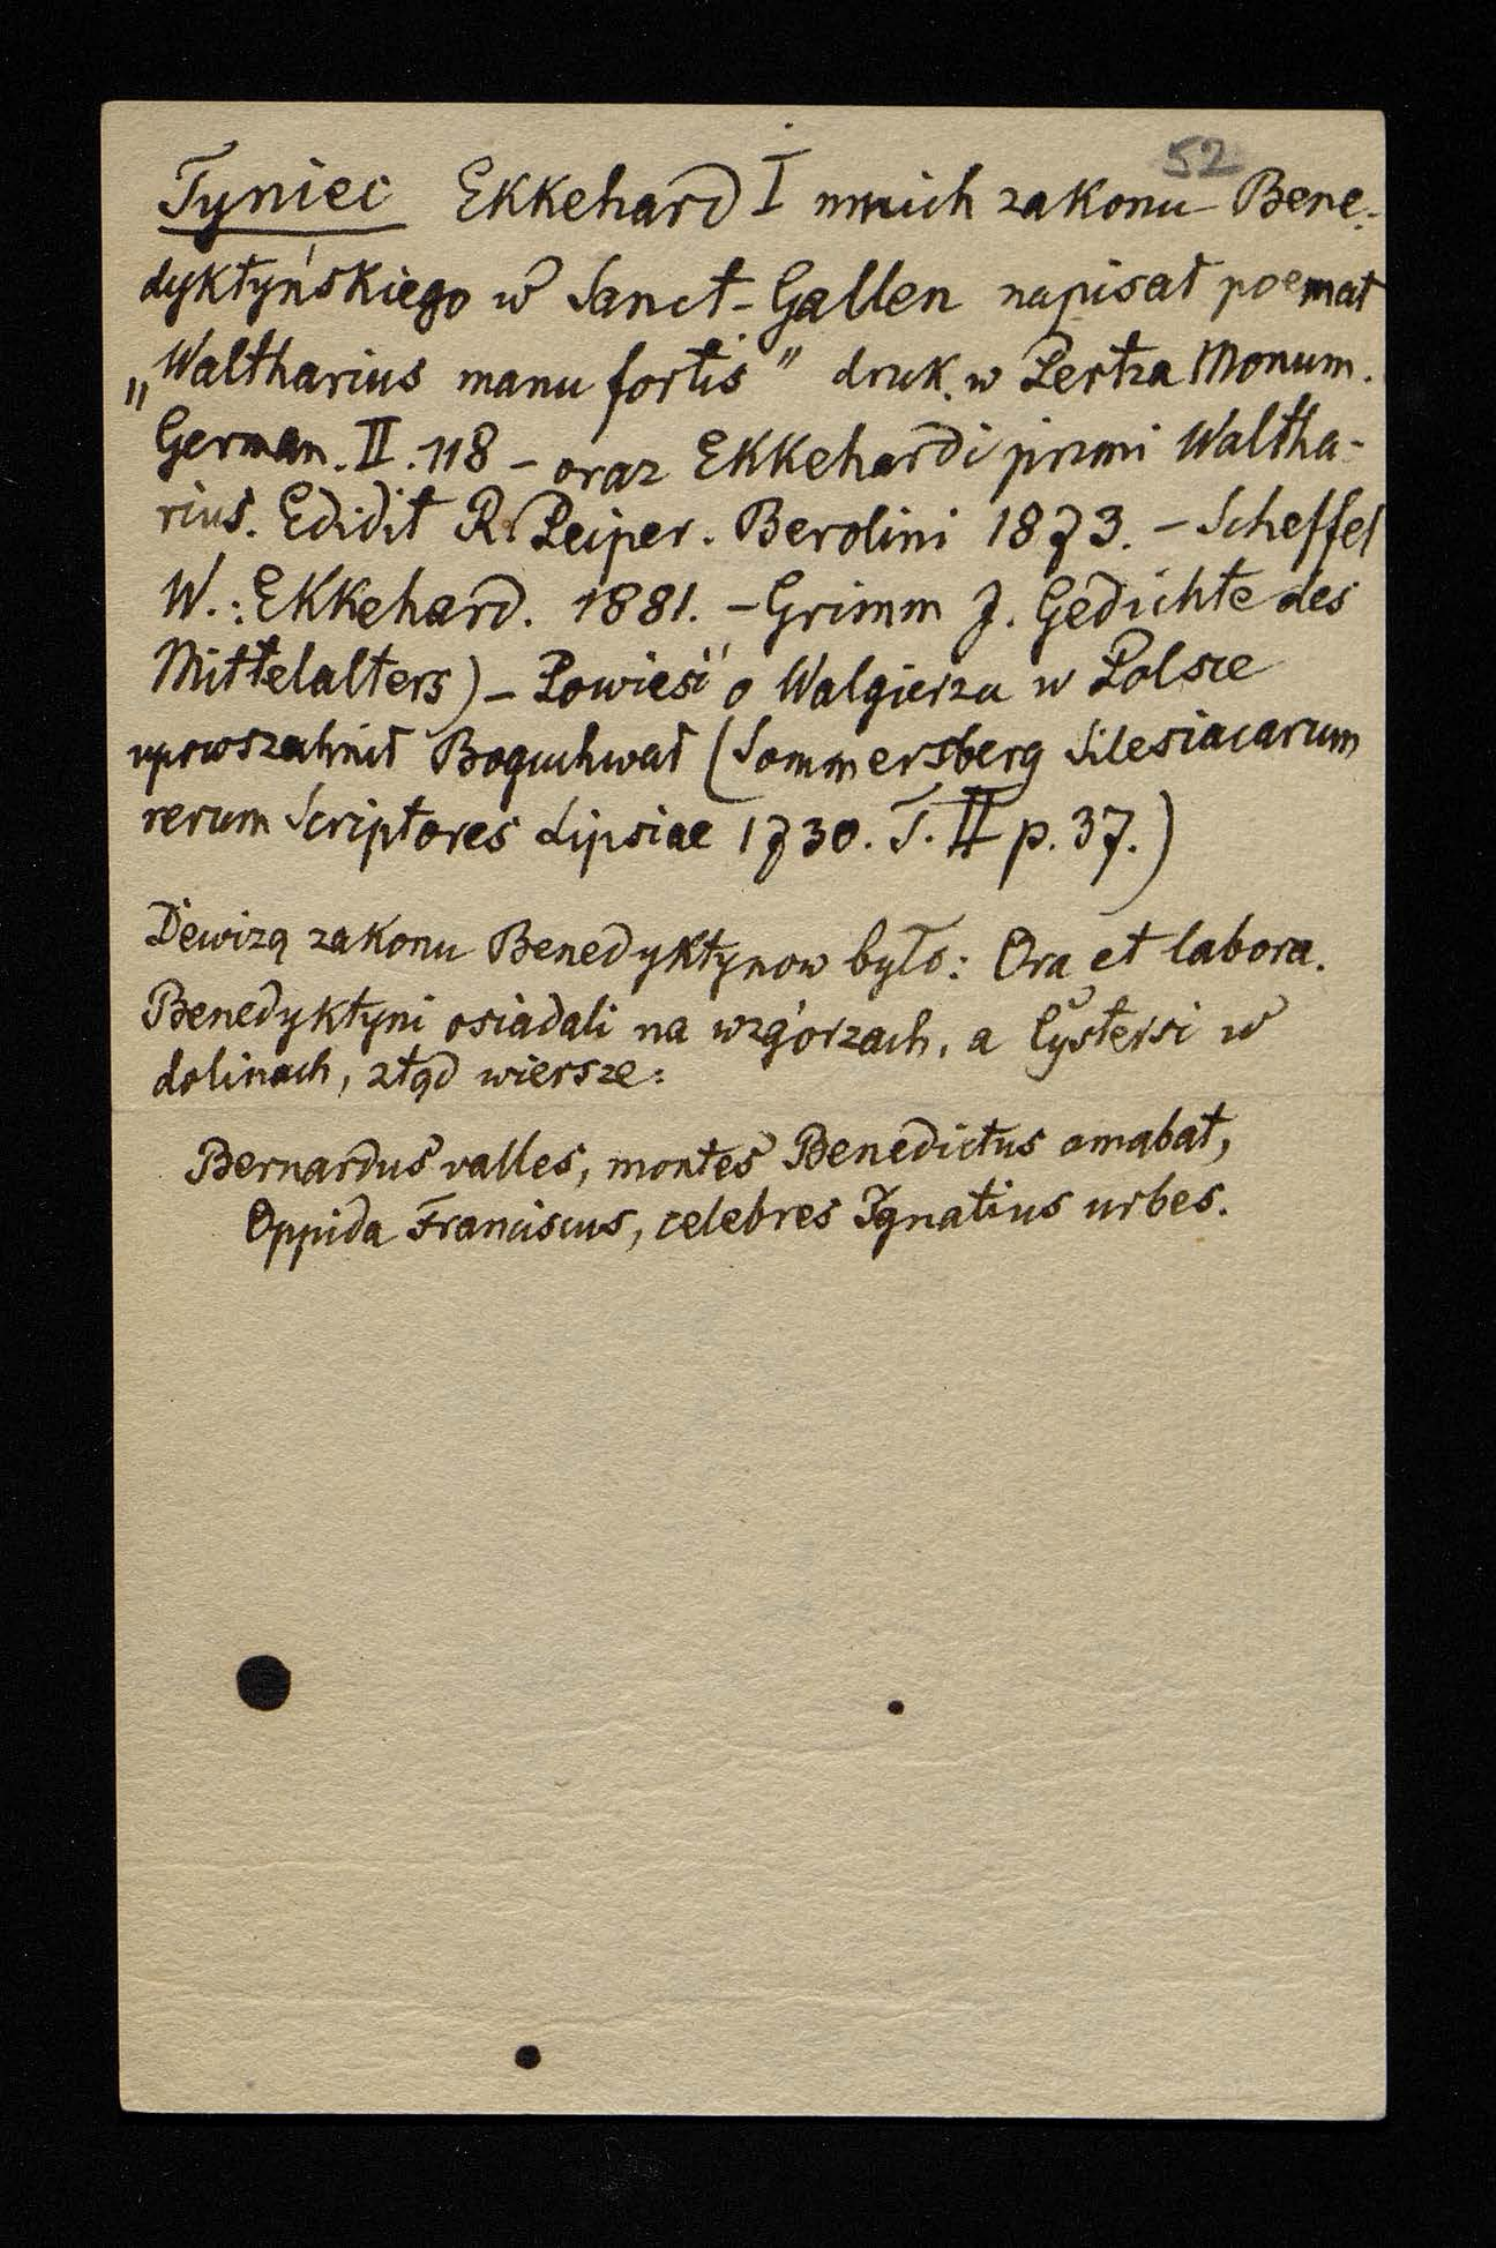 52
Tyniec Ekkehard I mnich zakonu Bene-
dyktyńskiego w Sanct-Gallen napisał poemat
„Waltharius manu fortis" druk. w Pertza Monum.
German. II. 118 - oraz Ekkehardi primi Waltha-
rius. Edidit R. Peiper. Berolini 1873. - Scheffel
W.: Ekkehard. 1881. - Grimm J. Gedichte des
Mittelalters) - Powieść o Walgierzu w Polsce
upowszechnił Boguchwał (Sommersberg Silesiacarum
rerum Scriptores Lipsiae 1730. T. II p. 37.)
Dewizą zakonu Benedyktynow było: Ora et labora.
Benedyktyni osiadali na wzgórzach, a Cystersi w
dolinach, ztąd wiersze:
Bernardus valles, montes Benedictus amabat,
Oppida Franciscus, celebres Ignatius urbes.